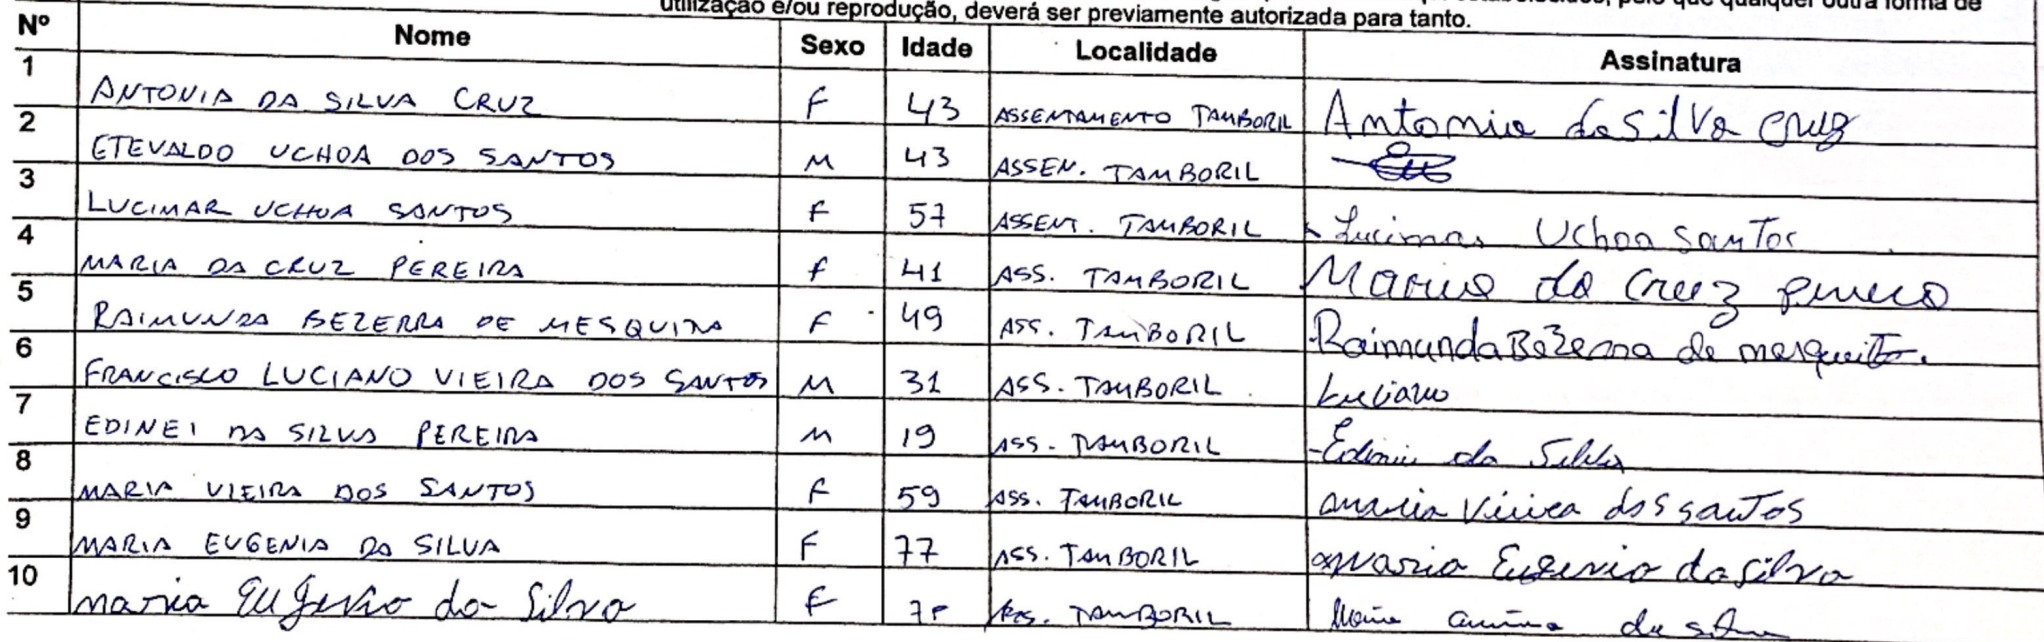 utilização e/ou reprodução, deverá ser previamente autorizada para tanto.
Nº Nome Sexo Idade Localidade Assinatura
1 ANTONIA DA SILVA CRUZ F 43 ASSENTAMENTO TAMBORIL Antonia da Silva Cruz
2 ETEVALDO UCHOA DOS SANTOS M 43 ASSEN. TAMBORIL
3 LUCIMAR UCHOA SANTOS F 57 ASSENT. TAMBORIL Lucimar Uchoa Santos
4 MARIA DA CRUZ PEREIRA F 41 ASS. TAMBORIL Maria da Cruz
5 RAIMUNDA BEZERRA DE MESQUITA F 49 ASS. TAMBORIL Raimunda Bezerra de mesquita.
6 FRANCISCO LUCIANO VIEIRA DOS SANTOS M 31 ASS. TAMBORIL Luciano
7 EDINEI DA SILVA PEREIRA M 19 ASS. TAMBORIL Edinei da Silva
8 MARIA VIEIRA DOS SANTOS F 59 ASS. TAMBORIL maria Vieira dos santos
9 MARIA EUGENIA DA SILVA F 77 ASS. TAMBORIL maria Eugenia da silva
10 maria Eugenio da Silva F ASS. TAMBORIL